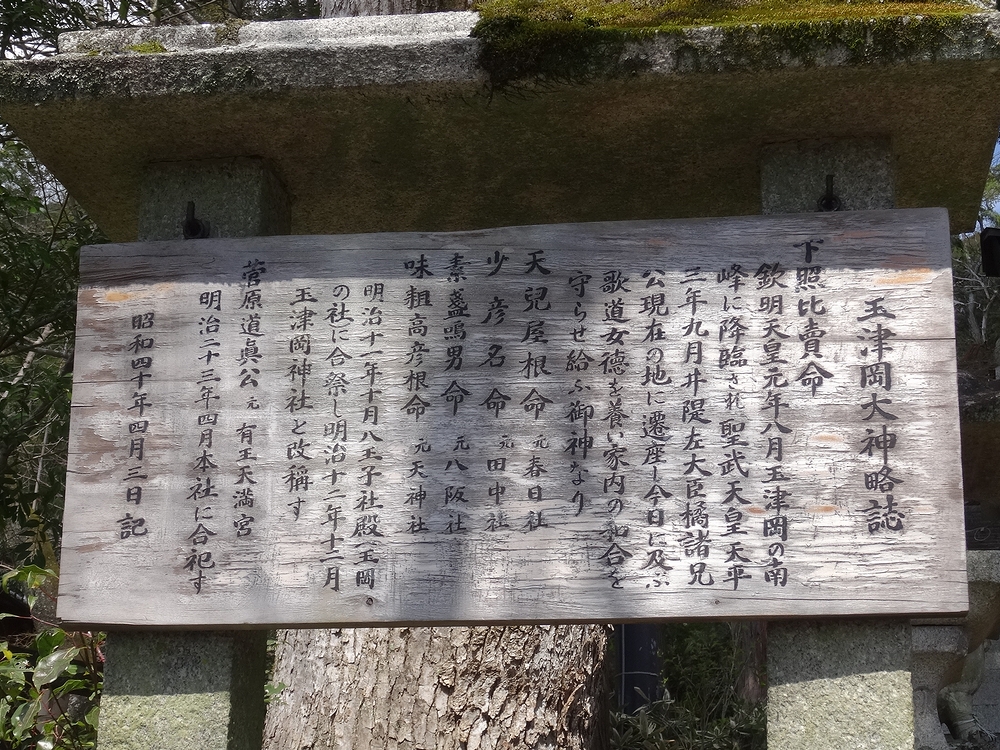 玉津岡大神略誌
下照比賣命
欽明天皇元年八月玉津岡の南
峰に降臨され聖武天皇天平
三年九月井隄左大臣橘諸兄
公現在の地に遷座し今日に及ぶ
歌道女徳を養い家内の和合を
守らせ給ふ御神なり
天兒屋根命 元春日社
少彦名命 元田中社
素盞嗚男命 元八阪社
味耜高彦根命 元天神社
明治十一年十月八王子社殿(玉岡
の社に合祭し明治十二年十二月
玉津岡神社と改稱す
菅原道眞公 元有王天満宮
明治二十三年四月本社に合祀す
昭和四十年四月三日記